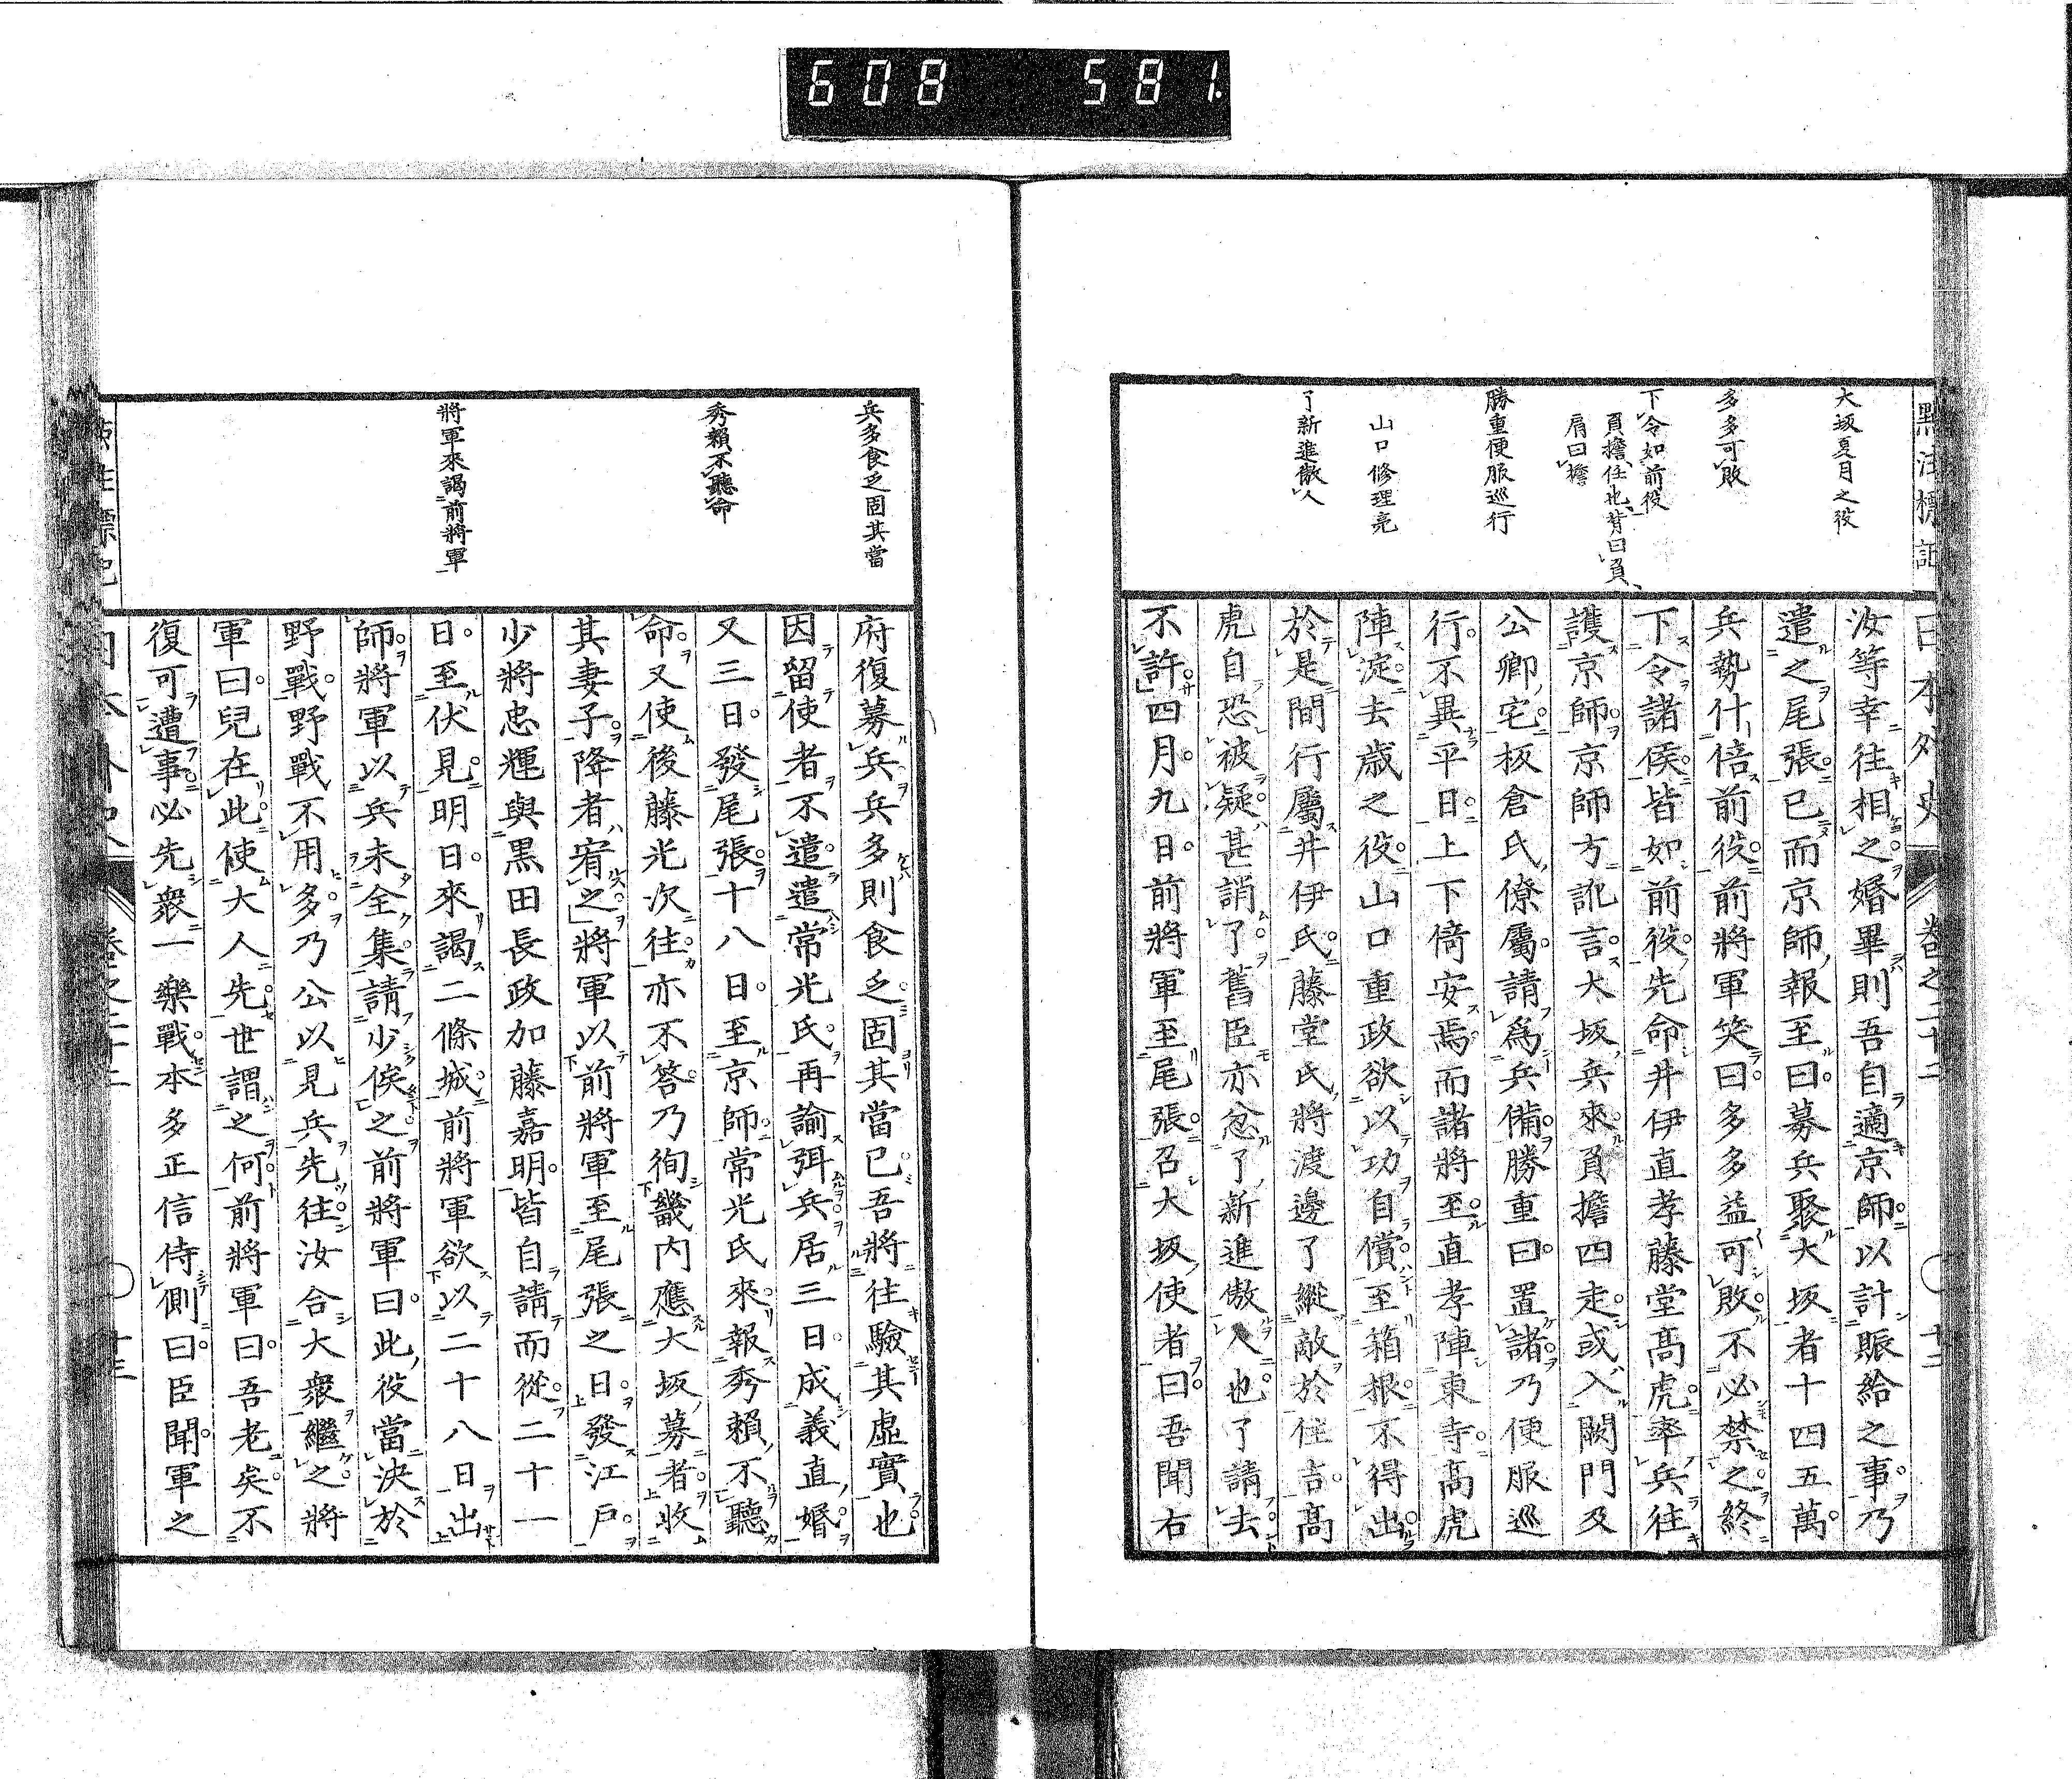 608 581
大坂夏月之役
多多可敗
下令如前役
負擔、任也、背曰負、
肩曰擔
勝重便服巡行
山口修理亮
了新進傲人
日本外史 卷之二十二
汝等幸往相之婚畢則吾自適京師以計賑給之事乃
遣之尾張已而京師報至曰募兵聚大坂者十四五萬
兵勢什倍前役前將軍笑曰多多益可敗不必禁之終
下令諸侯皆如前役先命井伊直孝藤堂高虎率兵往
護京師京師方訛言大坂兵來負擔四走或入闕門及
公卿宅板倉氏僚屬請爲兵備勝重曰置諸乃便服巡
行不異平日上下倚安焉而諸將至直孝陣東寺高虎
陣淀去歲之役山口重政欲以功自償至箱根不得出
於是間行屬井伊氏藤堂氏將渡邊了縱敵於住吉高
虎自恐被疑甚誚了舊臣亦忿了新進傲人也了請去
不許四月九日前將軍至尾張召大坂使者曰吾聞右
兵多食乏固其當
秀賴不聽命
將軍來謁前將軍
府復募兵兵多則食乏固其當已吾將往驗其虛實也
因留使者不遣遣常光氏再諭弭兵居三日成義直婚
又三日發尾張十八日至京師常光氏來報秀賴不聽
命又使後藤光次往亦不答乃徇畿內應大坂募者收
其妻子降者宥之將軍以前將軍至尾張之日發江戶
少將忠輝與黑田長政加藤嘉明皆自請而從二十一
日至伏見明日來謁二條城前將軍欲以二十八日出
師將軍以兵未全集請少俟之前將軍曰此役當決於
野戰野戰不用多乃公以見兵先往汝合大衆繼之將
軍曰兒在此使大人先世謂之何前將軍曰吾老矣不
復可遭事必先衆一樂戰本多正信侍側曰臣聞軍之